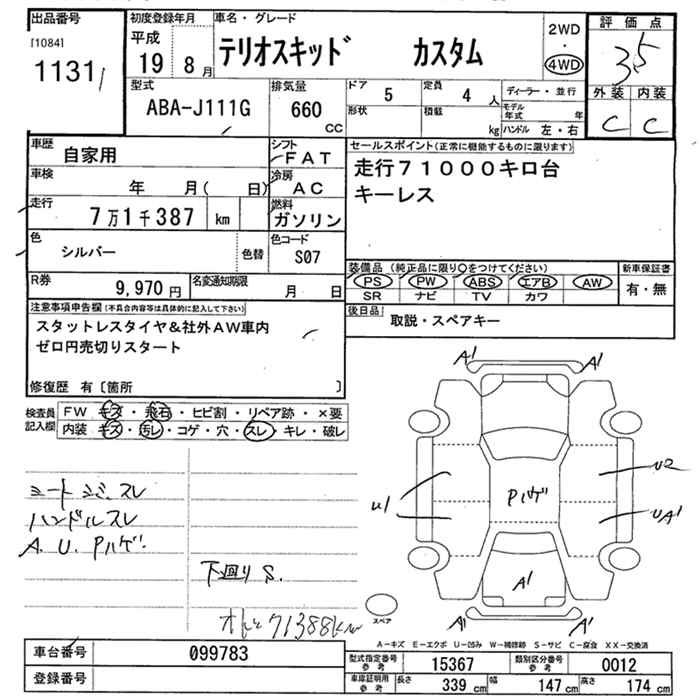 出品番号 初度登録年月 車名・グレード 2WD ・ 4WD 評価点
[1084] 1131 平成 19 8月 テリオスキッド カスタム 3.5
型式 排気量 ドア 5 定員 4人 ディーラー・並行 外装 内装
ABA-J111G 660 CC 形状 積載 kg モデル年式 年 ハンドル 左・右 C C
車歴 自家用 シフト FAT セールスポイント(正常に機能するものに限ります)
車検 年 月( 日) 冷房 AC 走行71000キロ台
走行 7万1千387 km 燃料 ガソリン キーレス
色 シルバー 色替 色コード S07
装備品(純正品に限り○をつけてください) 新車保証書
R券 9,970円 名変通知期限 月 日 PS PW ABS エアB AW 有・無
SR ナビ TV カワ
注意事項申告欄(不具合内容等は具体的に記入して下さい) 後日品 取説・スペアキー
スタットレスタイヤ&社外AW車内
ゼロ円売切りスタート
修復歴 有〔箇所 〕
検査員記入欄 FW キズ・飛石・ヒビ割・リペア跡・×要
内装 キズ・汚レ・コゲ・穴・スレ・キレ・破レ
A1 A1
U2
シートシミ、スレ U1 Pハゲ UA1
ハンドルスレ
A.U.Pハゲ
下回りS. A1
71388km スペア A1 A1
A-キズ E-エクボ U-凹み W-補修跡 S-サビ C-腐食 XX-交換済
車台番号 099783 型式指定番号 参考 15367 類別区分番号 参考 0012
登録番号 車庫証明用 参考 長さ 339 cm 幅 147 cm 高さ 174 cm